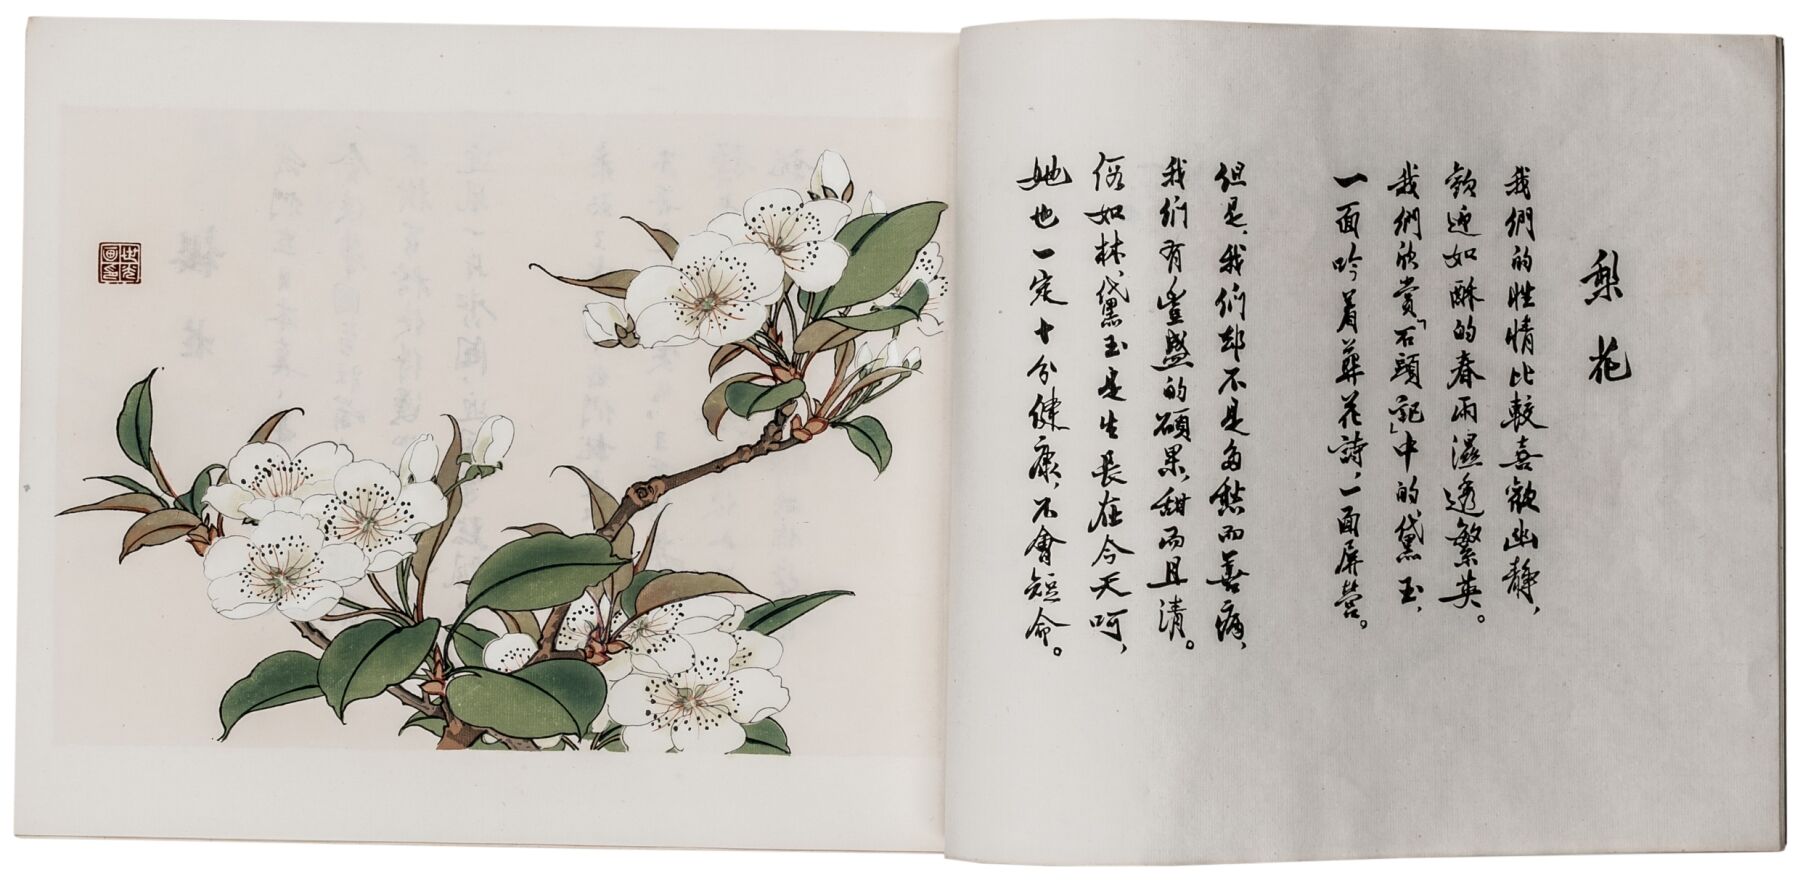 梨花
我們的性情比較喜歡幽靜，
歡迎如酥的春雨濕透繁英。
我們欣賞「石頭記」中的黛玉，
一面吟着葬花詩，一面屏營。
但是，我們却不是多愁而善病，
我們有豐盛的碩果，甜而且清。
假如林黛玉是生長在今天呵，
她也一定十分健康，不會短命。
世光畫印